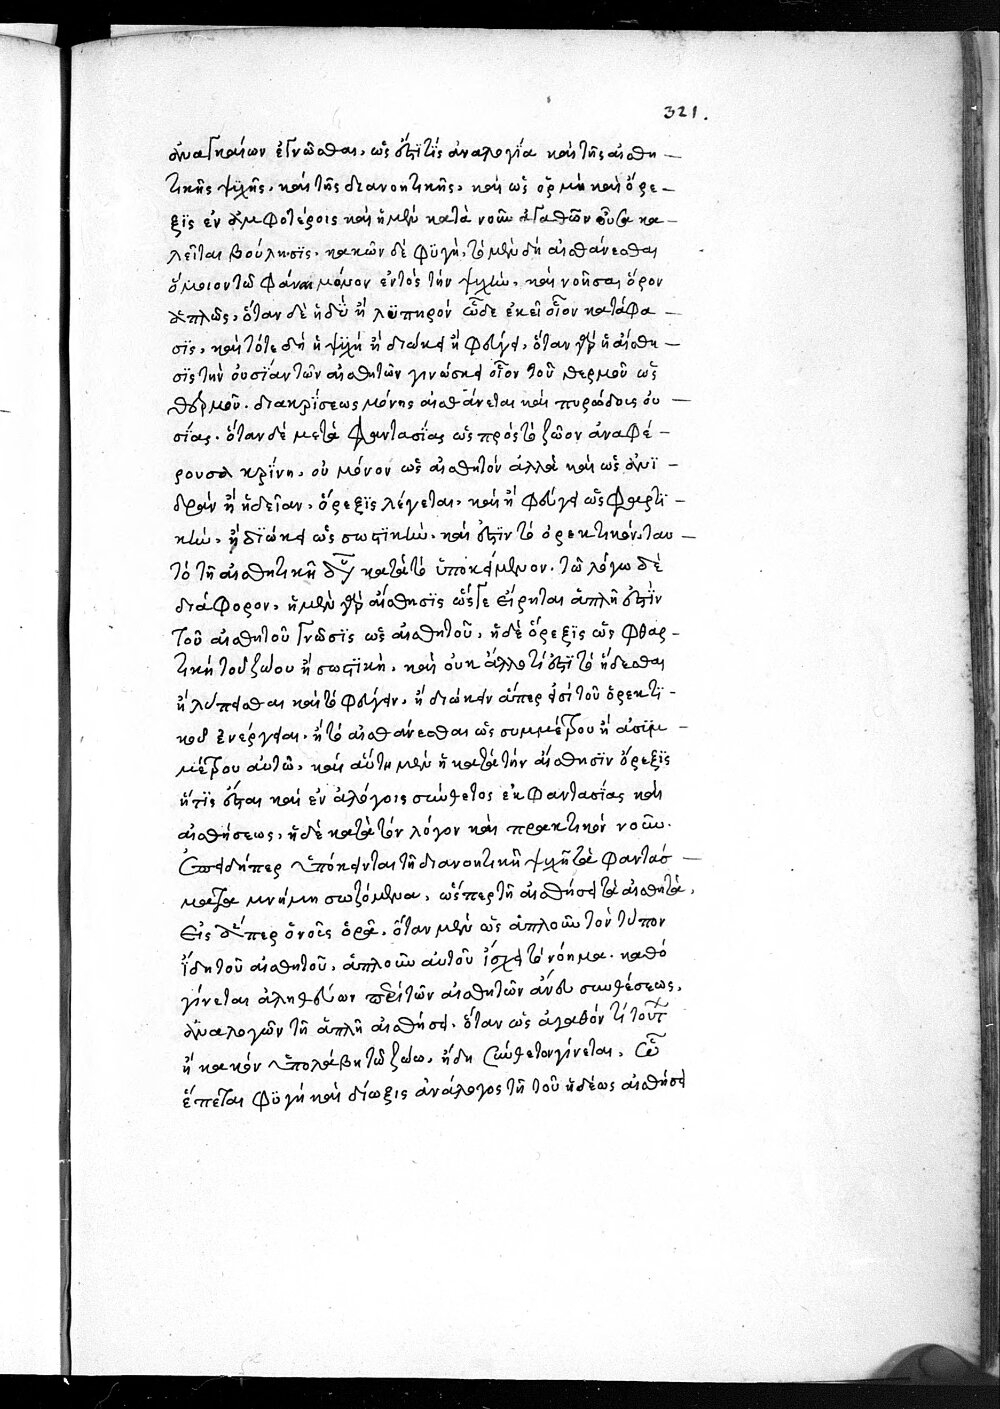 321.
ἀναγκαίων ἐγνῶσθαι, ὡς ἔστι τίς ἀναλογία καὶ τῆς αἰσθη –
τικῆς ψυχῆς, καὶ τῆς διανοητικῆς, καὶ ὡς ὁρμὴ καὶ ὄρε –
ξις ἐν ἀμφοτέροις καὶ ἡ μὲν κατὰ νοῦν ἀγαθῶν οὖσα κα –
λεῖται βούλησις, κακῶν δὲ φυγή, τὸ μὲν δὴ αἰσθάνεσθαι
ὅμοιον τῷ φάναι μόνον ἐντὸς τὴν ψυχὴν, καὶ νοῆσαι ὅρον
ἁπλῶς, ὅταν δὲ ἡδὺ ἢ λυπηρόν ὧδε ἐκεῖ οἷον κατάφα –
σις, καὶ τότε δὴ ἡ ψυχὴ ἢ διώκει ἢ φεύγει, ὅταν γὰρ ἡ αἴσθη –
σις τὴν οὐσίαν τῶν αἰσθητῶν γινώσκει οἷον τοῦ θερμοῦ ὡς
θερμοῦ. διακρίσεως μόνης αἰσθάνεται καὶ πυρώδους οὐ –
σίας. ὅταν δὲ μετὰ φαντασίας ὡς πρὸς τὸ ζῶον ἀναφέ –
ρουσα κρίνῃ, οὐ μόνον ὡς αἰσθητόν ἀλλὰ καὶ ὡς ἀνι –
δρὰν ἢ ἡδεῖαν, ὄρεξις λέγεται, καὶ ἢ φεύγει ὡς φθαρτι –
κὴν, ἢ διώκει ὡς σωστικὴν. καὶ ἔστιν τὸ ὀρεκτικόν, ταυ –
τὸ τῇ αἰσθητικῇ δυ κατὰ τὸ ὑποκείμενον. τῶ λόγω δὲ
διάφορον, ἡ μὲν γὰρ αἴσθησις ὥς γε εἴρηται ἁπλῆ ἔστιν
τοῦ αἰσθητοῦ γνῶσις ὡς αἰσθητοῦ, ἡ δὲ ὄρεξις ὡς φθαρ –
τικὴ τοῦ ζώου ἢ σωστικὴ. καὶ οὐκ ἄλλο τί ἔστι τὸ ἥδεσθαι
ἢ λυπεῖσθαι καὶ τὸ φεύγειν, ἢ διώκειν ἅπερ εἰσὶ τοῦ ὀρεκτι –
κοῦ ἐνέργειαι. ἢ τὸ αἰσθάνεσθαι ὡς συμμέτρου ἢ ἀσυμ –
μέτρου αὐτῶ, καὶ αὕτη μὲν ἡ κατὰ τὴν αἴσθησιν ὄρεξις
ἥτις ἔσται καὶ ἐν ἀλόγοις σύνθετος ἐκ φαντασίας καὶ
αἰσθήσεως, ἡ δὲ κατὰ τὸν λόγον καὶ πρακτικόν νοῦν.
ἐπειδήπερ ὑπόκεινται τῇ διανοητικῇ ψυχῇ τὰ φαντάσ –
ματα μνήμῃ σωζόμενα, ὥσπερ τῇ αἰσθήσει τὰ αἰσθητὰ,
εἰς ἅπερ ὁ νοῦς ὁρᾷ. ὅταν μὲν ὡς ἁπλοῦν τὸν τύπον
ἴδῃ τοῦ αἰσθητοῦ, ἁπλοῦν αὐτοῦ ἴσχει τὸ νόημα. καθὸ
γίνεται ἀληθεύων περὶ τῶν αἰσθητῶν ἄνευ συνθέσεως,
ἀναλογῶν τῇ ἁπλῇ αἰσθήσει. ὅταν ὡς ἀγαθόν τί τοῦτ
ἢ κακὸν ὑπολάβῃ τῷ ζώω, ἤδη σύνθετον γίνεται. ὧ
ἕπεται φυγὴ καὶ δίωξις ἀνάλογος τῇ τοῦ ἡδέως αἰσθήσει